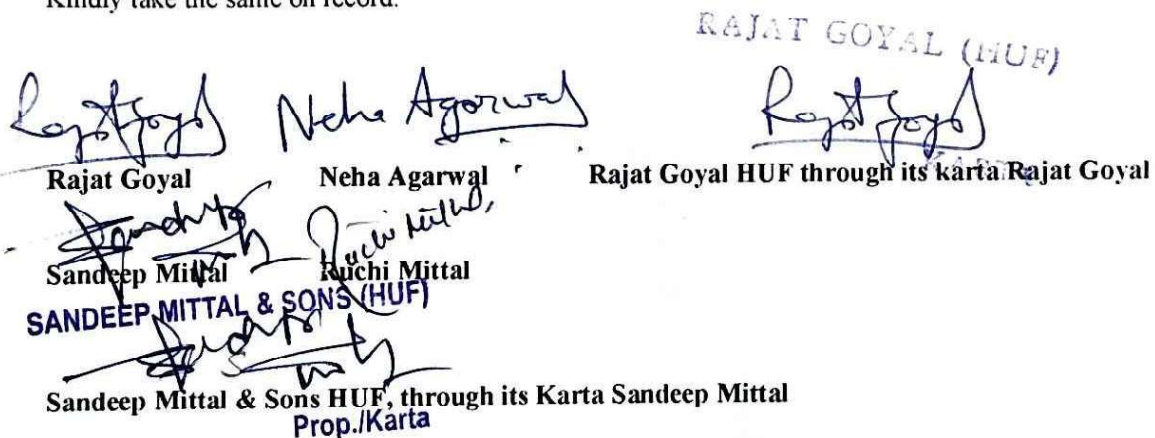 Kindly take the same on record.
RAJAT GOYAL (HUF)
Rajat Goyal Neha Agarwal Rajat Goyal
Rajat Goyal Neha Agarwal Rajat Goyal HUF through its karta Rajat Goyal
KARTA
Ruchi Mittal
Sandeep Mittal Ruchi Mittal
SANDEEP MITTAL & SONS (HUF)
Sandeep Mittal & Sons HUF, through its Karta Sandeep Mittal
Prop./Karta